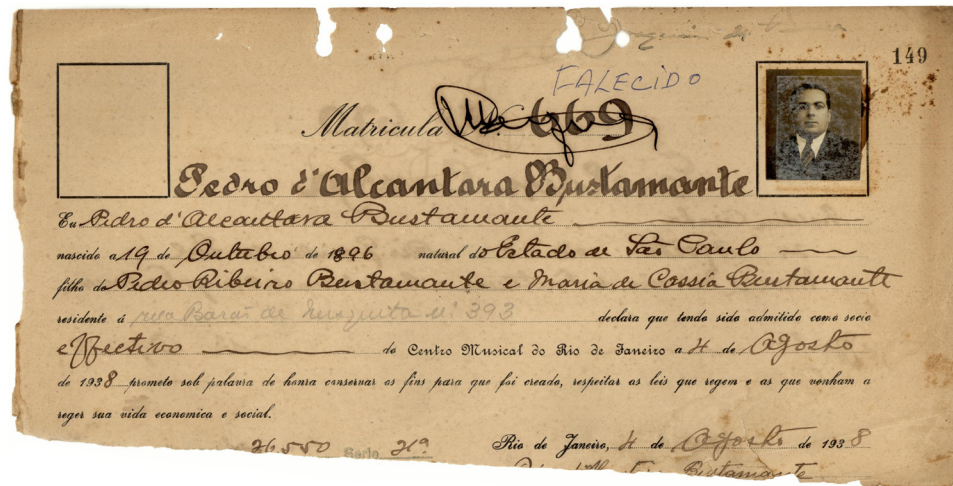 149
FALECIDO
Matricula Nº 669
Pedro d'Alcantara Bustamante
Eu Pedro d'Alcantara Bustamante
nascido a 19 de Outubro de 1896 natural do Estado de São Paulo
filho de Pedro Ribeiro Bustamante e Maria de Cassia Bustamante
residente á rua Barão de Mesquita nº 393 declara que tendo sido admitido como socio
effectivo do Centro Musical do Rio de Janeiro a 4 de Agosto
de 1938 prometo sob palavra de honra conservar os fins para que foi creado, respeitar as leis que regem e as que venham a
reger sua vida economica e social.
26.550 Serie 21ª Rio de Janeiro, 4 de Agosto de 1938
Bustamante